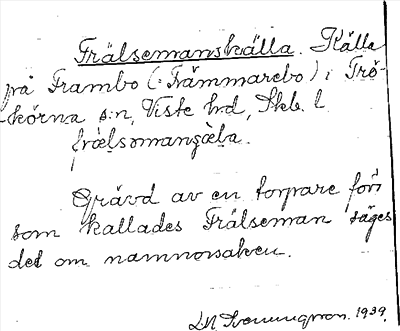 Frälsemanskälla. Källa
på Frambo (: Främmarebo) i Trö-
körna s:n, Viste hd, Skb. l.
Grävd av en torpare för
som kallades Frälseman, säges
det om namnorsaken.
1939.